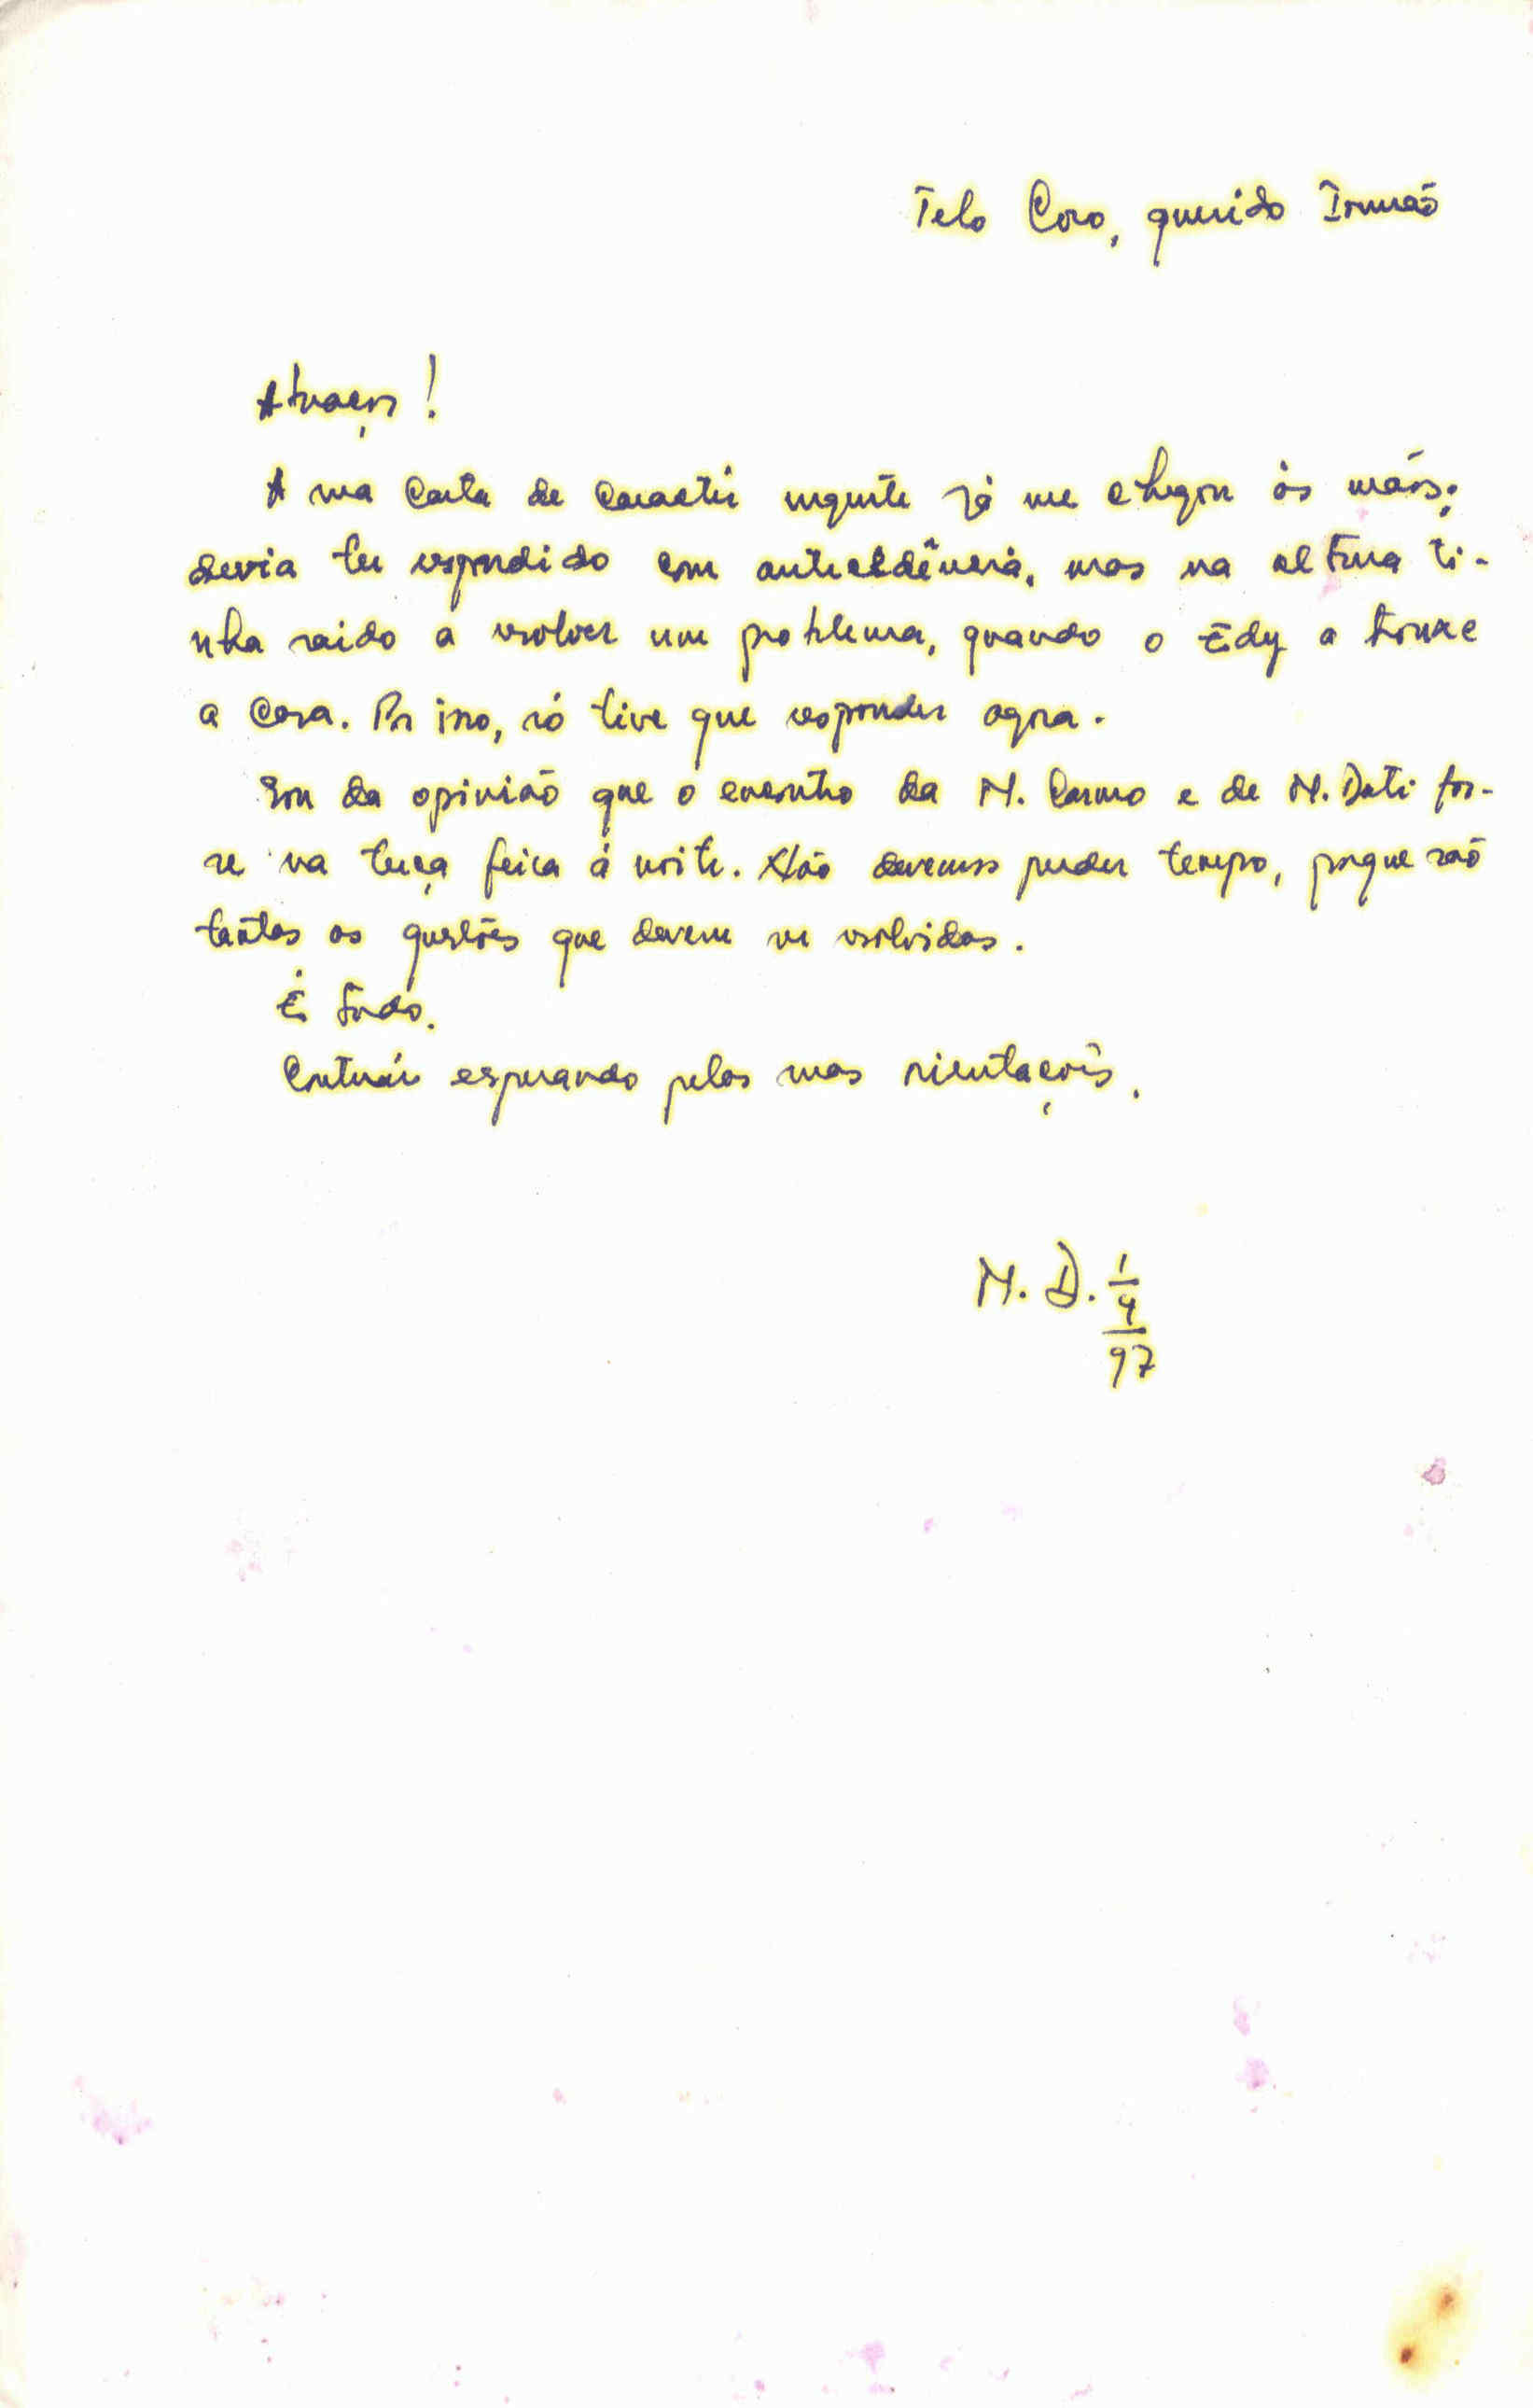 Telo Coro, querido Irmão
Abraços!
A sua carta de caracter urgente já me chegou às mãos;
devia ter respondido com antecedência, mas na altura ti-
nha saido a resolver um problema, quando o Edy a trouxe
a casa. Por isso, só tive que responder agora.
Sou da opinião que o encontro da M. Carmo e de M. Dati fos-
se na terça feira á noite. Não devemos perder tempo, porque são
tantas as questões que devem ser resolvidas.
É tudo.
esperando pelas suas orientações.
M. D. 1/4/97